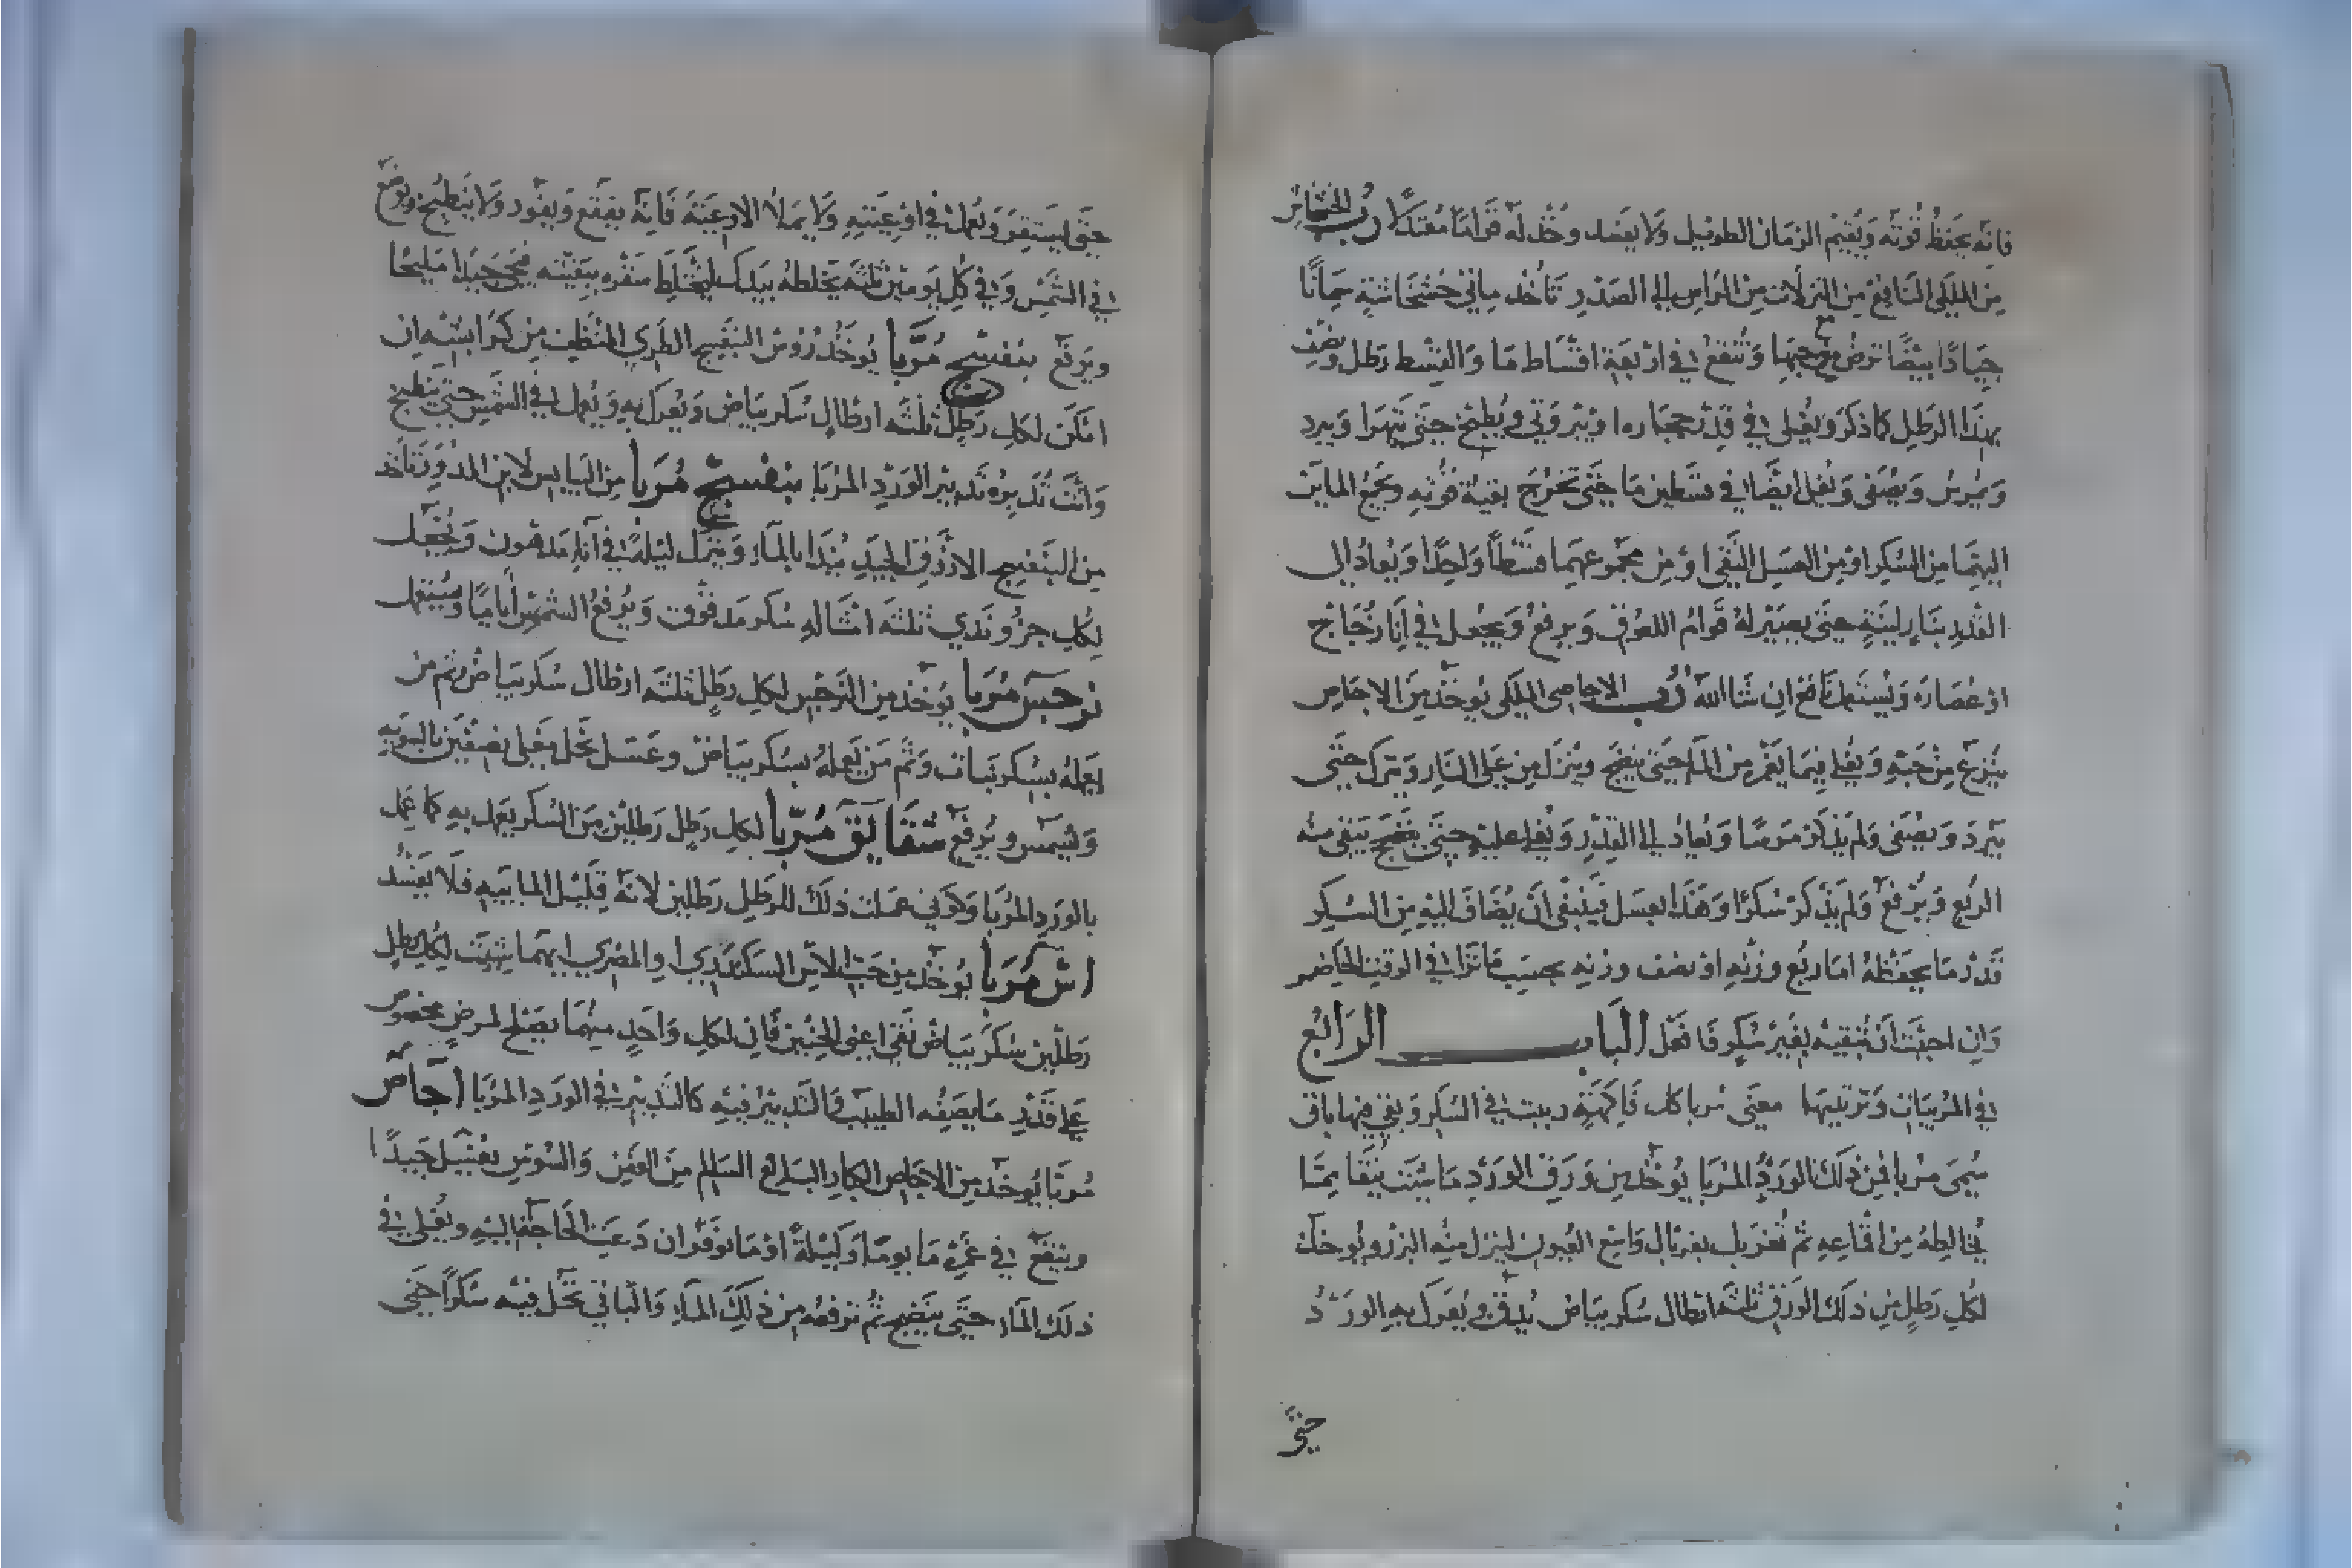 فانه يحفظ قوته ويقيم الزمان الطويل ولا يفسد وخذ له قواما معتدلا رب الخشخاش
من الملكي النافع من النزلات من الراس الى الصدر تاخذ مايتي خشخاشة سمانا
جيادا بيضا ترض مع حبها وتنقع في اربعة اقساط ما والقسط رطل ونصف
بهذا الرطل كما ذكر ويغلى في قدر حجاره او ويطبخ حتى يتهرا ويبرد
ويمرس ويصفى ويغلى ايضا في قسطين ما حتى تخرج بقية قوته ويجمع الماين
اليهما من السكر او من العسل النقي او من مجموعهما قسطا واحدا ويعاد الى
القدر بنار لينة حتى يصير له قوام اللعوق ويرفع ويجعل في انا زجاج
او غضاره ويستعمل نافع ان شا الله رب الاجاص الملكي يوخذ من الاجاص
ينزع من حبه ويغلى فيما يغمره من الما حتى ينضج وينزل من على النار ويترك حتى
يبرد ويصفى ولم يذكر مرسا ويعاد الى القدر ويغلى عليه حتى ينضج يبقى منه
الربع ويرفع ولم يذكر سكرا وهذا بعسل فينبغي ان يضاف اليه من السكر
قدر ما يحفظه اما ربع وزنه او نصف وزنه بحسب ما ترا في الوقت الحاضر
وان احببت ان تبقيه بغير سكر فافعل الباب الرابع
في المربيات وترتيبها معنى مربا كل فاكهة ربيت في السكر وبقي فيها باق
سمي مربا فمن ذلك الورد المربا يوخذ من ورق الورد ما شيت ينقا مما
يخالطه من اقماعه ثم تغربل بغربال واسع العيون لينزل منه البزر ويوخذ
لكل رطل من ذلك الورق ثلثة ارطال سكر بياض يدق ويعرك به الورد
حتى
حتى يستقر ويعمل في اوعيته ولا يملا الاوعية فانه يفقع ويفور ولا ينطبخ ويوضع
في الشمس وفي كل يومين ثلثة يخلطه بيدك ليختلط ببقيته فيجي جيدا مليحا
ويرفع بنفسج مربا يوخذ روس البنفسج الطري المنظف من كرابيثه ان
امكن لكل رطل ثلثة ارطال سكر بياض ويعرك به ويعمل في الشمس حتى ينطبخ
وانت تدبره تدبير الورد المربا بنفسج مربا من اليابس لابن المدور تاخذ
من البنفسج الازرق الجيد يندا بالماء ويترك ليلة في آناء مدهون ويجعل
لكل جزو ندي ثلثة امثاله سكر مدقوق ويرفع الشمس اياما ويستعمل
نرجس مربا يوخذ من النرجس لكل رطل ثلثة ارطال سكر بياض وثم من
يعمله بسكر نبات وثم من يعمله بسكر بياض وعسل نحل يغلى نصفين بالسويه
ويشمس ويرفع شقايق مربا لكل رطل رطلين من السكر يعمل به كما عمل
بالورد المربا وكوني عملت ذلك للرطل رطلين لانه قليل الماييه فلا يفسد
اس مربا يوخذ من حب الاس السكندري او المصري ايهما شيت لكل رطل
رطلين سكر بياض نقي اعني الحبين فان لكل واحد منهما يصلح لمرض مخصوص
على قدر ما يصفه الطبيب والتدبير فيه كالتدبير في الورد المربا اجاص
مربا يوخذ من الاجاص الكبار البالغ السالم من العفن والسوس يغسل جيدا
وينقع في غمره ما يوما وليلة او ما توفر ان دعت الحاجة اليه ويغلى في
ذلك الماء حتى ينضج ثم ترفعه من ذلك الماء والباقي تحل فيه سكرا حتى